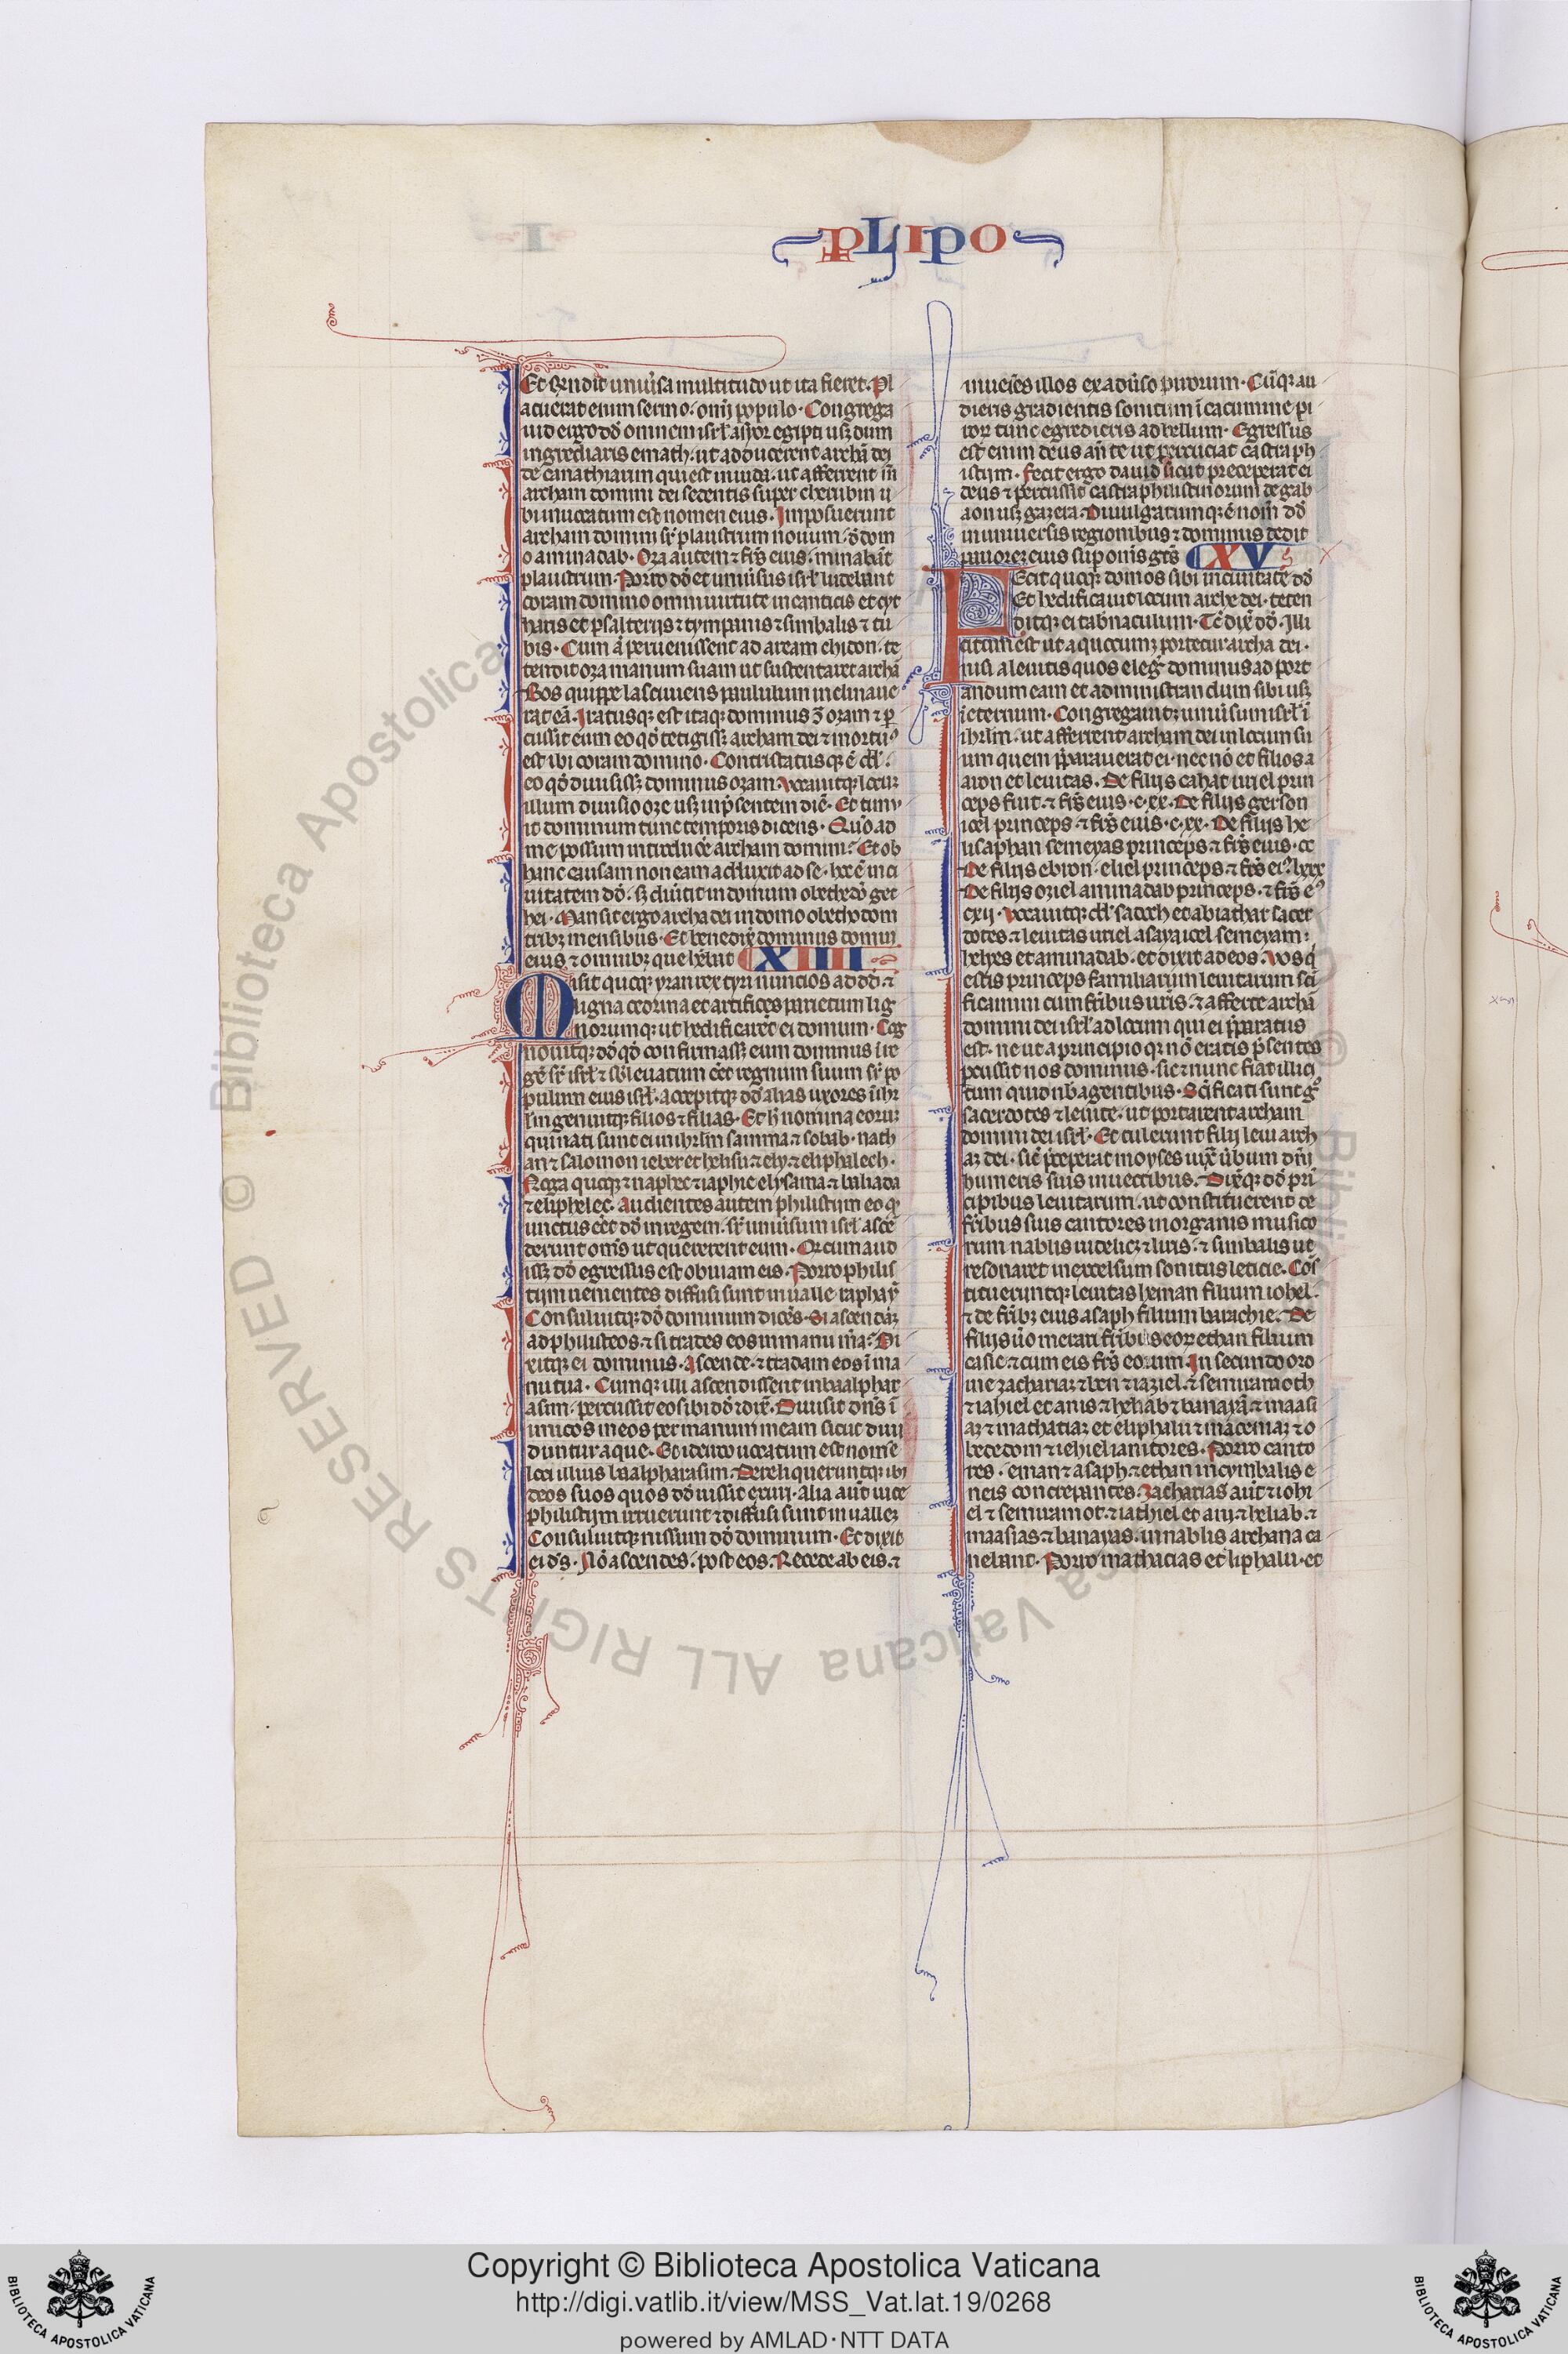 PLIPO
Et respondit uniũsa multitudo ut ita fieret. Pl
acuerat enim sermo om̃i populo. Congrega
uit ergo dd̃ omnem isrl̃ a syor egipti usq̃ dum
ingrediaris emath. ut adducerent archã dei
de cariathiarim qui est in iuda. ut afferrent in
archam domini dei sedentis super cherubin u
bi inuocatum est nomen eius. Imposuerunt
archam domini sr̃ plaustrum nouum. d̃ dom
o aminadab. Oza autem ⁊ fr̃s eius. minabãt
plaustrum. Porro dd̃ et uniũsus isrl̃ ludebant
coram domino omni uirtute in canticis et cyt
haris et psalteriis ⁊ tympanis ⁊ simbalis ⁊ tu
bis. Cum ã peruenissent ad aream chidon. te
tendit oza manum suam ut sustentaret archã
Bos quippe lasciuiens paululum inclinaue
rat eã. Iratusq̃ est itaq̃ dominus 9̃ ozam ⁊ p̃
cussit eum eo qd̃ tetigiss̃ archam dei ⁊ mortu9
est ibi coram domino. Contristatusq̃ ẽ dd̃.
eo qd̃ diuisiss̃ dominus ozam. uocauitq̃ locũ
illum diuisio oze usq̃ in p̃sentem diẽ. Et timu
it dominum tunc temporis dicens. Quo ad
me possum introducẽ archam domini? Et ob
hanc causam non eam adduxit ad se. hoc ẽ in ci
uitatem dd̃. s̃ diũtit in domum obethedõ get
hei. Mansit ergo archa dei in domo obethedom
tribȝ mensibus. Et benedix̃ dominus domui
eius ⁊ omnibȝ que hẽbat XIIII
Misit quoq̃ yran rex tyri nuncios ad dd̃. ⁊
ligna cedrina et artifices parietum lig
norumq̃ ut hedificarẽt ei domum. Cog
nouitq̃ dd̃ qd̃ confirmass̃ eum dominus ĩ re
gẽ sr̃ isrl̃ ⁊ subleuatum eẽt regnum suum sr̃ po
pulum eius isrl̃. accepitq̃ dd̃ alias uxores ĩ ihr
lm̃ genuitq̃ filios ⁊ filias. Et h̃ nomina eorũ
qui nati sunt ei in ihrlm̃ samma ⁊ sobab. nath
an ⁊ salomon ieber et helisu ⁊ ely ⁊ eliphalech.
Noga quoq̃ ⁊ naphec ⁊ iaphie elysama ⁊ baliada
⁊ eliphelec. Audientes autem philistijm eo q̃
unctus eẽt dd̃ in regem. sr̃ uniũsum isrl̃ ascẽ
derunt om̃s ut quererent eum. Qr̃ cum aud
iss̃ dd̃ egressus est obuiam eis. Porro philis
tijm uenientes diffusi sunt in ualle raphaỹ
Consuluitq̃ dd̃ dominum dicẽs. Si ascendã
ad philisteos. ⁊ si trades eos in manu m̃a? Di
xitq̃ ei dominus. Ascende. ⁊ tradam eos ĩ ma
nu tua. Cumq̃ illi ascendissent in baalphar
asim. percussit eos ibi dd̃ ⁊ dix̃. Diuisit dñs ĩ
imicos meos per manum meam sicut diui
duntur aque. Et idcirco uocatum est nomẽ
loci illius baalpharasim. Dereliqueruntq̃ ibi
deos suos quos dd̃ iussit exuri. alia aũt uice
philistijm irruerunt ⁊ diffusi sunt in ualleȝ
Consuluitq̃ rursum dd̃ dominum. Et dixit
ei ds̃. Nõ ascendes. post eos. Recede ab eis. ⁊
inuenies illos ex adũso pirorum. Cũq̃ au
dieris gradientis sonitum ĩ cacumine pi
ror tunc egredieris ad bellum. Egressus
est enim deus añ te ut percutiat castra ph
istijm. Fecit ergo dauid sicut preceperat ei
deus ⁊ percussit castra philistinorum de gab
aon usq̃ gazera. Diuulgatumq̃ ẽ nom̃ dd̃
in uniuersis regionibus ⁊ dominus dedit
pauorem eius sup om̃s gẽs XV
Fecit quoq̃ domos sibi in ciuitate dd̃
Et hedificauit locum arche dei. teten
ditq̃ ei tab̃naculum. Tc̃ dix̃ dd̃. Illi
citum est ut a quocumq̃ portetur archa dei.
nisi a leuitis quos elegit dominus ad port
andum eam et administrandum sibi usq̃
ĩ eternum. Congregauitq̃ uniũsum isrl̃ ĩ
ihrlm̃. ut afferrent archam dei in locum su
um quem p̃parauerat ei. nec nõ et filios a
aron et leuitas. De filijs cahat uriel prin
ceps fuit. ⁊ fr̃s eius. c.xx. De filijs gerson
ioel princeps. ⁊ fr̃s eius. c.xx. De filijs he
lisaphan semeyas princeps ⁊ fr̃s eius. cc
De filijs ebron. eliel princeps ⁊ fr̃s ei9. lxxx
De filijs oziel aminadab princeps. ⁊ fr̃s ei9
cxij. Vocauitq̃ dd̃ sadoch et abiathar sacer
dotes. ⁊ leuitas uriel asaya ioel semeyam.
helyes et aminadab. et dixit ad eos. Vos q̃
estis princeps familiarum leuitarum sc̃i
ficamini cum fr̃ibus ur̃is. ⁊ afferte archã
domini dei isrl̃ ad locum qui ei p̃paratus
est. ne ut a principio qr̃ nõ eratis p̃sentes
p̃cussit nos dominus. sic ⁊ nunc fiat illici
tum quid nob̃ agentibus. Sc̃ificati sunt g̃
sacerdotes ⁊ leuite. ut portarent archam
domini dei isrl̃. Et tulerunt filij leui arch
am dei. sic̃ p̃ceperat moyses iux̃ ũbum dñi
humeris suis in uectibus. Dix̃q̃ dd̃ pri
cipibus leuitarum. ut constituerent de
fr̃ibus suis cantores in organis musico
rum nablis uidelicȝ ⁊ liris. ⁊ simbalis ut
resonaret in excelsum sonitus leticie. Cõs
titueruntq̃ leuitas heman filium iohel.
⁊ de fr̃ibȝ eius asaph filium barachie. De
filijs ũo merari fr̃ibus eorum ethan filium
casie ⁊ cum eis fr̃s eorum. In secundo ordi
ne zachariam ⁊ ben ⁊ iaziel ⁊ semiramoth
⁊ iahiel et anis ⁊ heliab ⁊ banayã ⁊ maasi
am ⁊ mathatiam et eliphalu ⁊ maceniam ⁊ o
bededom ⁊ iehiel ianitores. Porro canto
res. eman ⁊ asaph. ⁊ ethan in cymbalis e
neis concrepantes. Zacharias aũt ⁊ iohi
el ⁊ semiramot. ⁊ iathiel et ani ⁊ heliab. ⁊
maasias. ⁊ banayas. in nablis archana ca
nebant. Porro mathatias et eliphalu. et
Copyright © Biblioteca Apostolica Vaticana
http://digi.vatlib.it/view/MSS_Vat.lat.19/0268
powered by AMLAD·NTT DATA
BIBLIOTECA APOSTOLICA VATICANA
BIBLIOTECA APOSTOLICA VATICANA
© Biblioteca Apostolica Vaticana ALL RIGHTS RESERVED